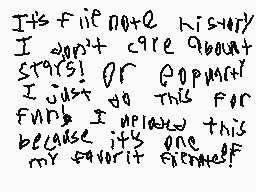 It's flipnote history
I don't care abount
stars! or popuarty
I just do this for
fun! I uploaed this
because it's one
my favorit